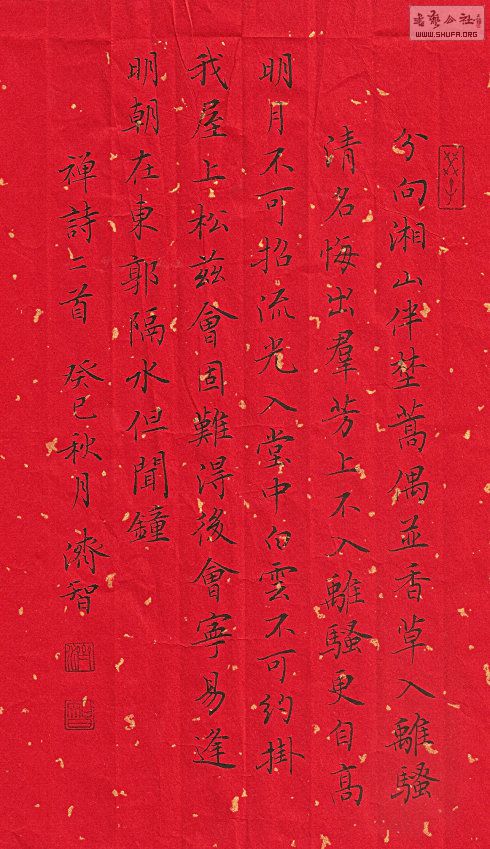 分向湘山伴埜蒿偶並香草入離騷
清名悔出羣芳上不入離騷更自高
明月不可招流光入堂中白雲不可約掛
我屋上松茲會固難得後會寧易逢
明朝在東郭隔水但聞鐘
禪詩二首 癸巳秋月 濟智
書藝公社
WWW.SHUFA.ORG